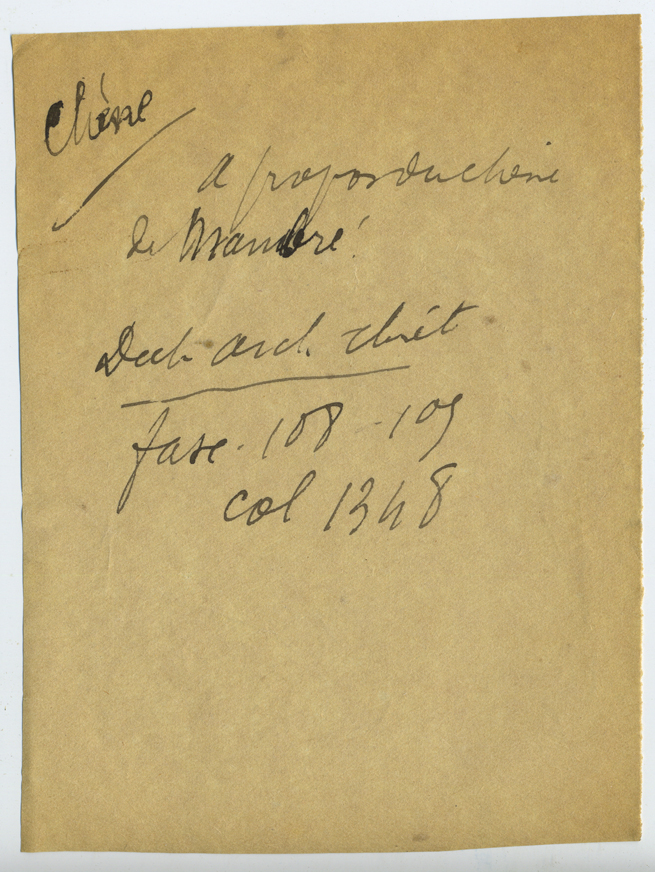 Chêne
A propos du chêne
de Mambré
Dict arch chrét
fasc. 108-109
col 1348